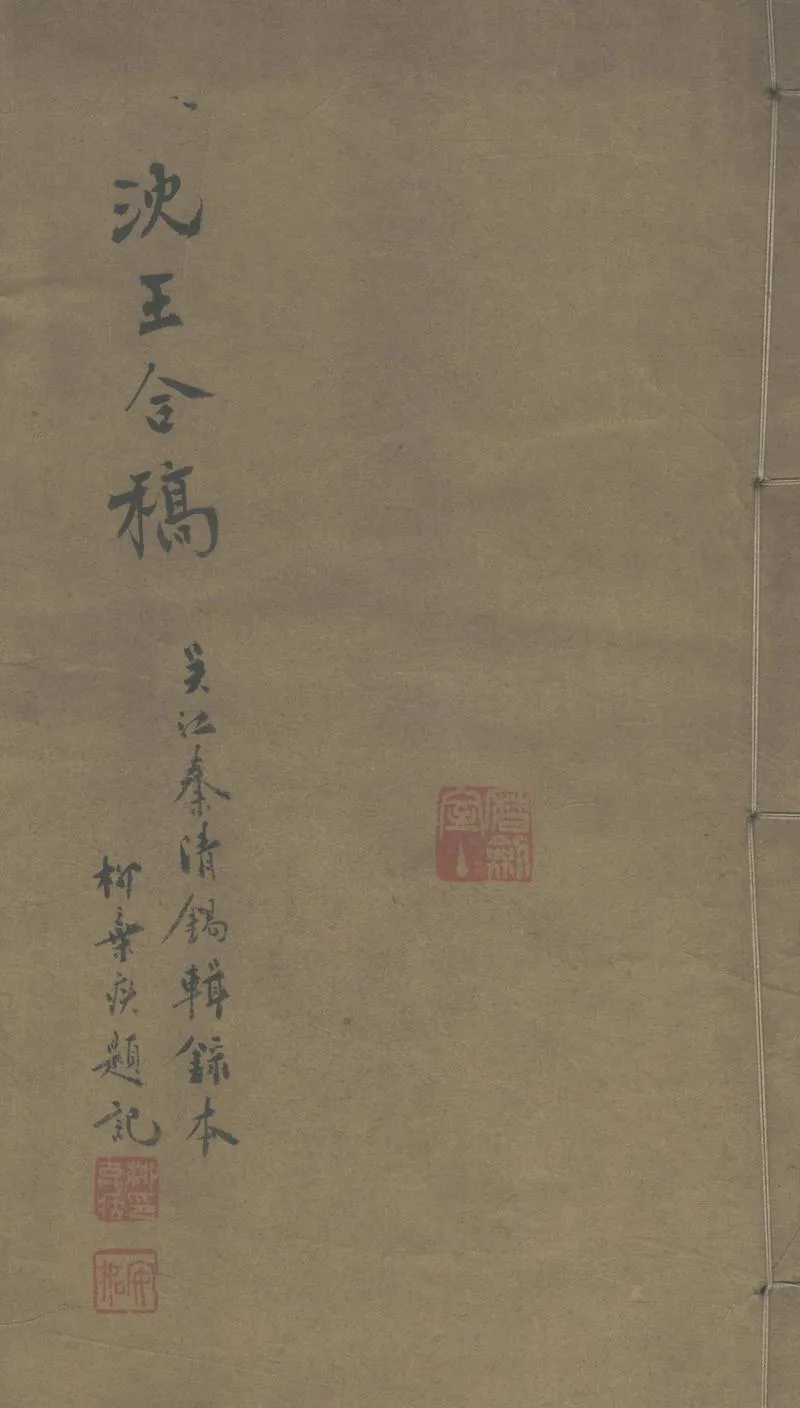 沈王合稿
吳江秦清錫輯錄本
柳棄疾題記